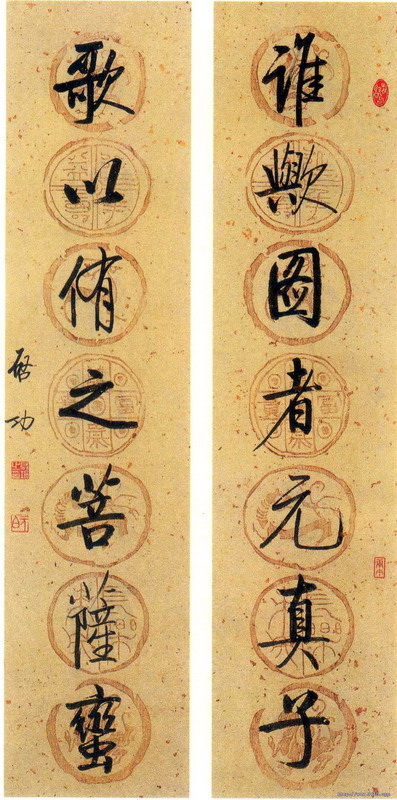 谁歟图者元真子
歌以侑之菩萨蛮
启功